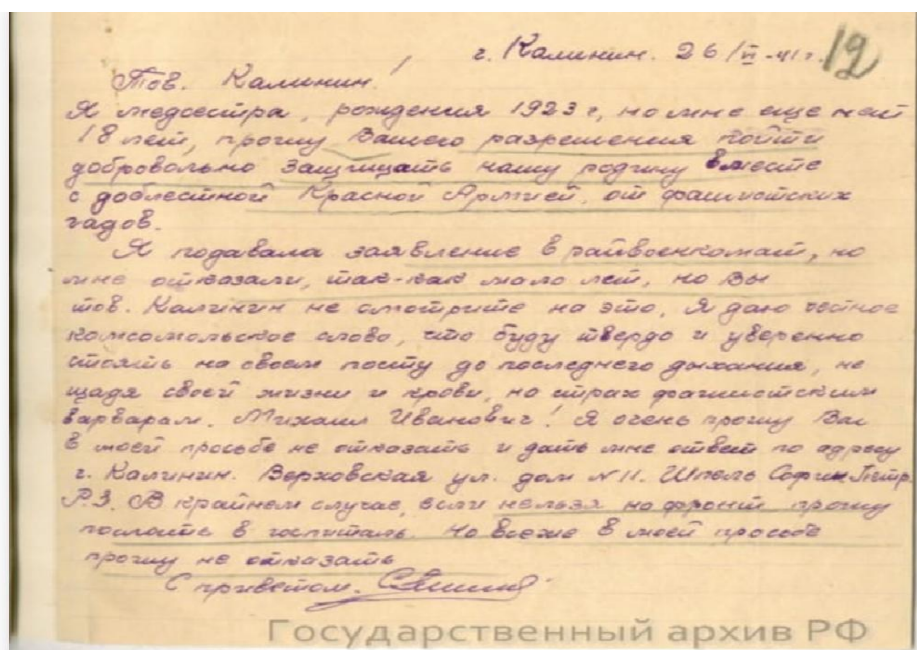 г. Калинин. 26/VI-41 г.
12
Тов. Калинин!
Я медсестра, рождения 1923 г, но мне еще нет
18 лет, прошу Вашего разрешения пойти
добровольно защищать нашу родину вместе
с доблестной Красной Армией, от фашистских
гадов.
Я подавала заявление в райвоенкомат, но
мне отказали, так-как мало лет, но Вы
тов. Калинин не смотрите на это, Я даю честное
комсомольское слово, что буду твердо и уверенно
стоять на своем посту до последнего дыхания, не
щадя своей жизни и крови, на страх фашистским
варварам. Михаил Иванович! Я очень прошу Вас
в моей просьбе не отказать и дать мне ответ по адресу
г. Калинин. Верховская ул. дом №11. Шполь Софии Петр.
P.S. В крайнем случае, если нельзя на фронт прошу
послать в госпиталь. Но всеже в моей просьбе
прошу не отказать
С приветом.
Государственный архив РФ